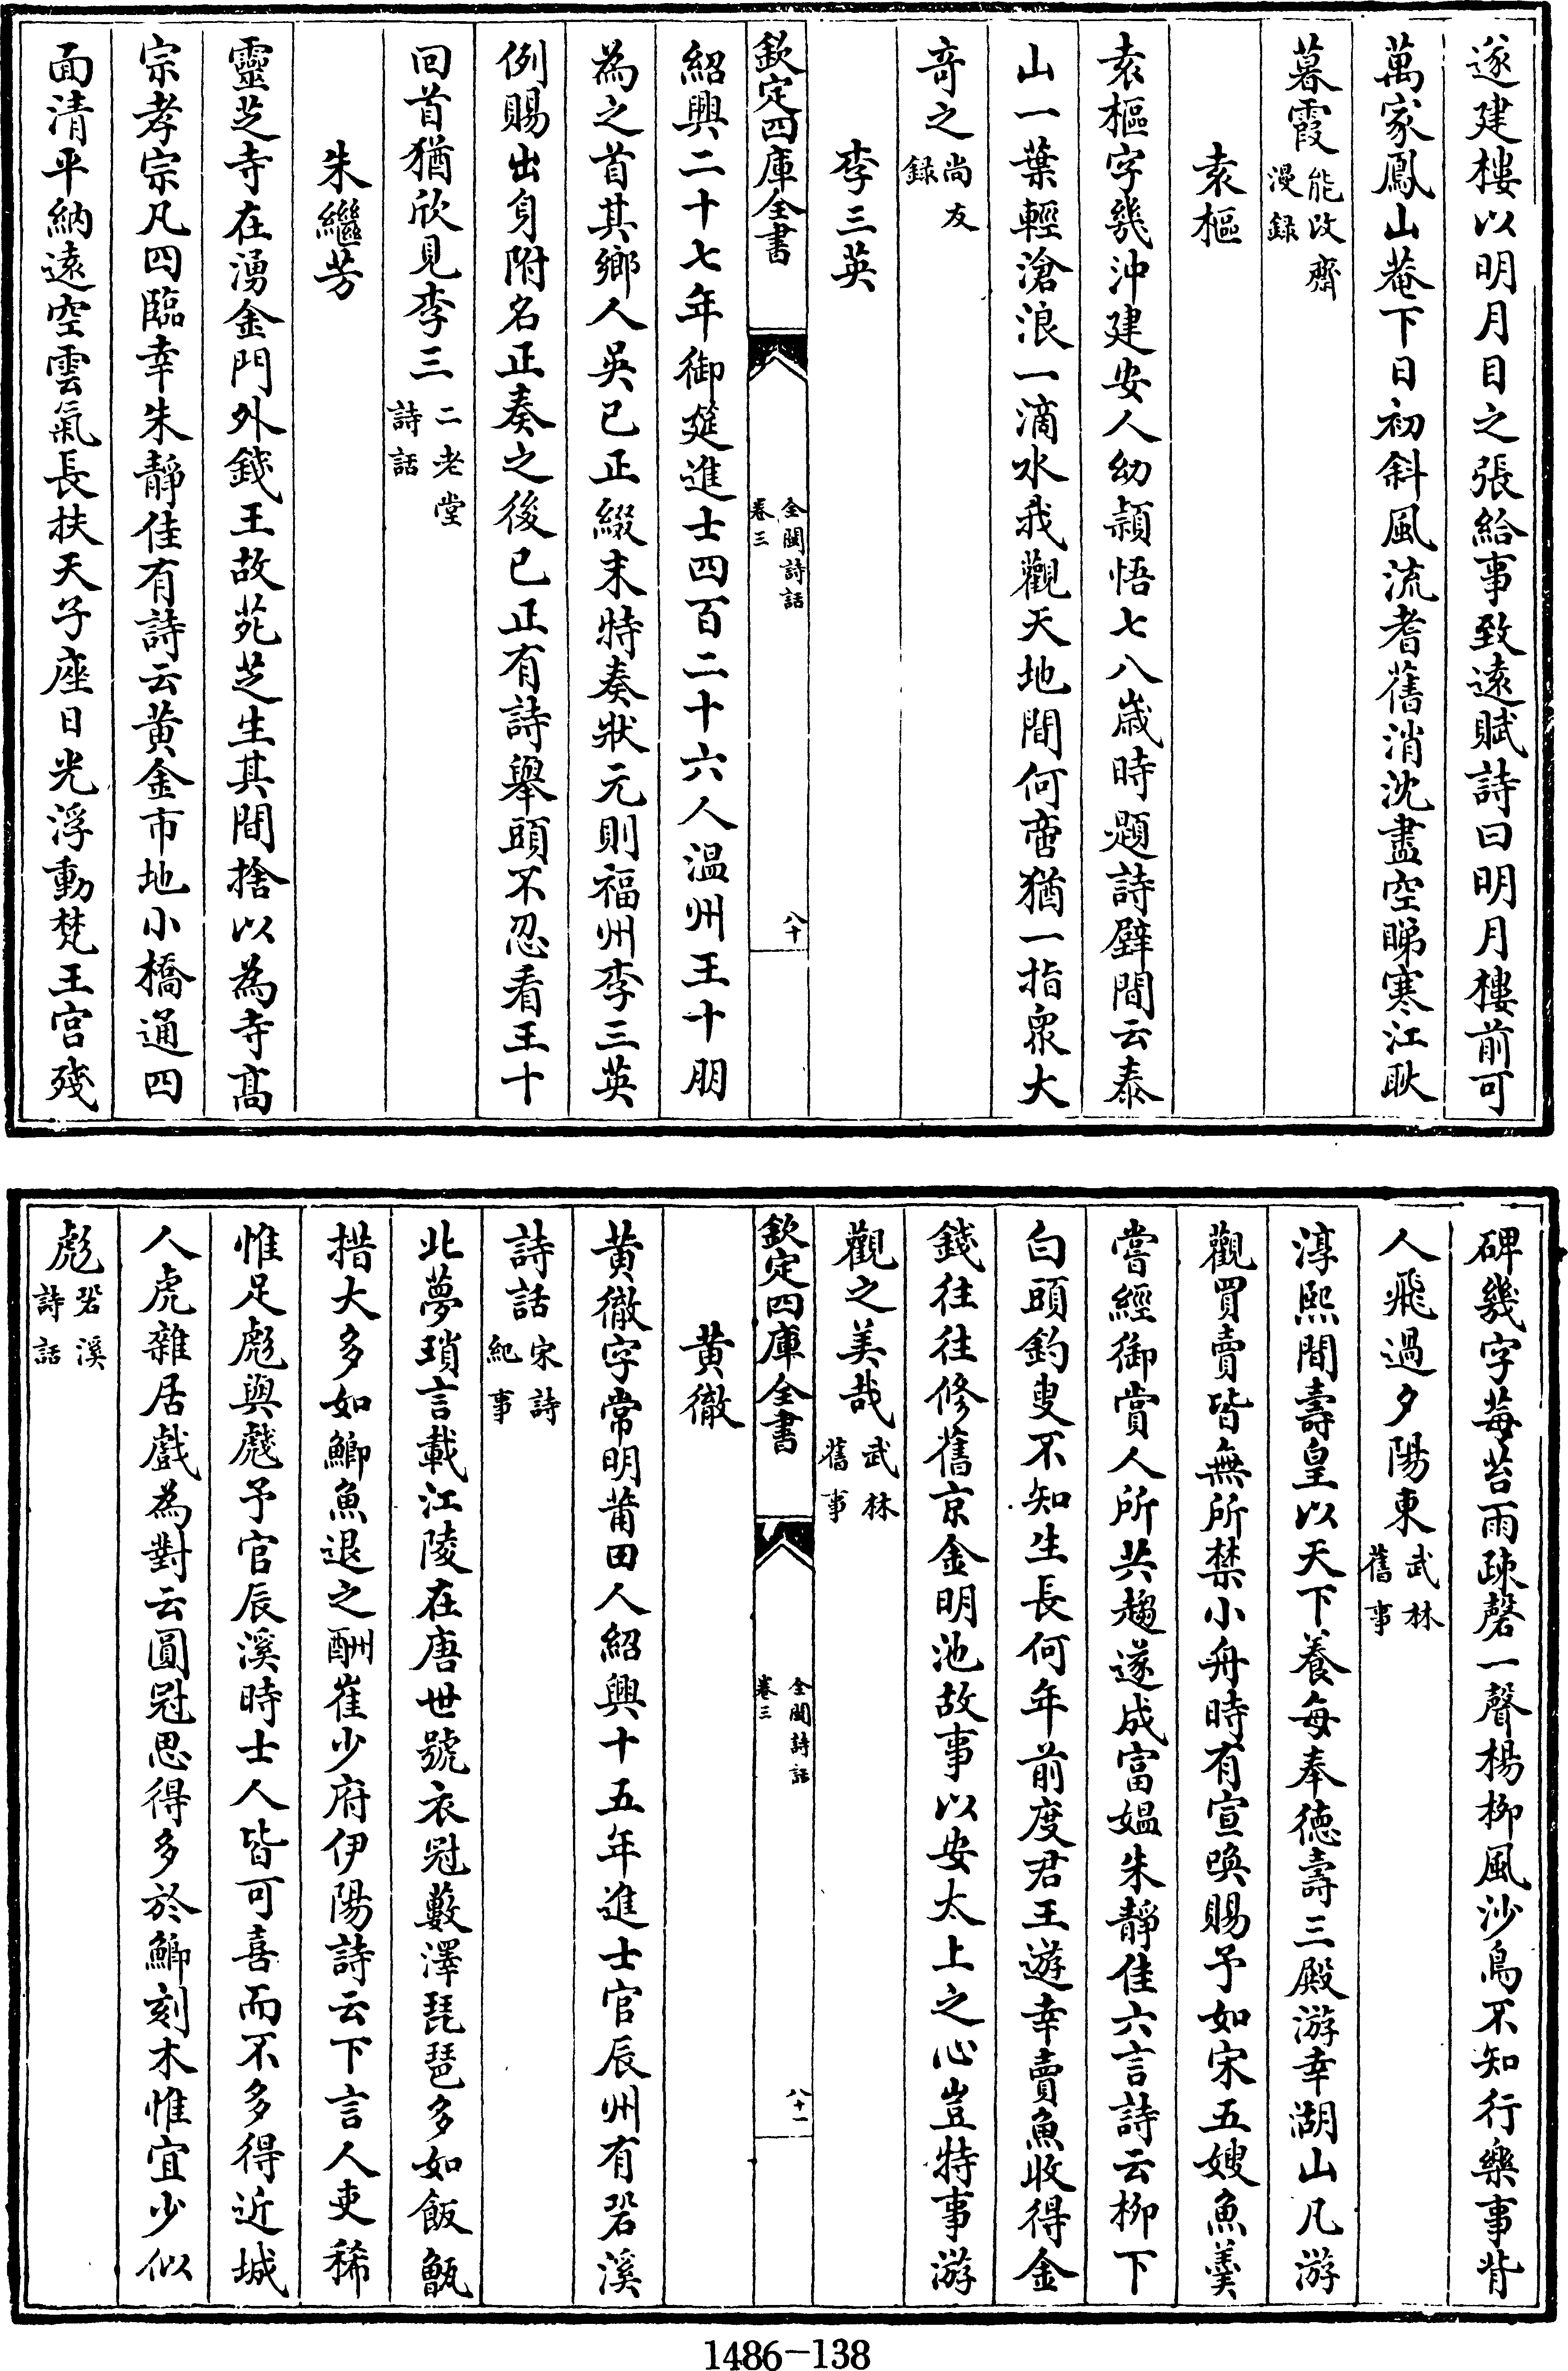 遂建樓以明月目之張給事致遠賦詩曰明月樓前可
萬家鳳山菴下日初斜風流耆舊消沈盡空睇寒江耿
暮霞能改齋漫録
袁樞
袁樞字幾沖建安人幼頴悟七八歳時題詩壁間云泰
山一葉輕滄浪一滴水我觀天地間何啻猶一指衆大
竒之尚友録
李三英
欽定四庫全書
全閩詩話
卷三
八十
紹興二十七年御筵進士四百二十六人温州王十朋
為之首其鄉人吳已正綴末特奏狀元則福州李三英
例賜出身附名正奏之後已正有詩舉頭不忍看王十
回首猶欣見李三二老堂詩話
朱繼芳
靈芝寺在湧金門外錢王故苑芝生其間捨以為寺髙
宗孝宗凡四臨幸朱靜佳有詩云黄金市地小橋通四
面清平納遠空雲氣長扶天子座日光浮動梵王宫殘
碑幾字莓苔雨疎磬一聲楊柳風沙鳥不知行樂事背
人飛過夕陽東武林舊事
淳熙間壽皇以天下養每奉德壽三殿游幸湖山凡游
觀買賣皆無所禁小舟時有宣喚賜予如宋五嫂魚羹
嘗經御賞人所共趨遂成富媪朱靜佳六言詩云柳下
白頭釣叟不知生長何年前度君王遊幸賣魚收得金
錢往往修舊京金明池故事以安太上之心豈特事游
觀之美哉武林舊事
欽定四庫全書
全閩詩話
卷三
八十一
黄徹
黄徹字常明莆田人紹興十五年進士官辰州有䂬溪
詩話宋詩紀事
北夢瑣言載江陵在唐世號衣冠藪澤琵琶多如飯甑
措大多如鯽魚退之酬崔少府伊陽詩云下言人吏稀
惟足彪與虥予官辰溪時士人皆可喜而不多得近城
人虎雜居戲為對云圓冠思得多於鯽刻木惟宜少似
彪䂬溪詩話
1486-138